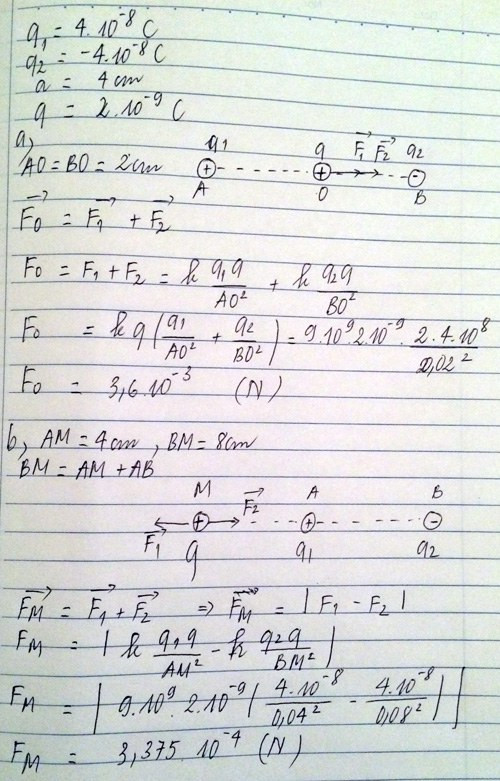 q₁ = 4.10⁻⁸ C
q₂ = -4.10⁻⁸ C
a = 4 cm
q = 2.10⁻⁹ C
a,
AO = BO = 2 cm
q₁ q F₁→ F₂→ q₂
+ + -
A O B
F₀→ = F₁→ + F₂→
F₀ = F₁ + F₂ = k q₁q/AO² + k q₂q/BO²
F₀ = kq(q₁/AO² + q₂/BO²) = 9.10⁹.2.10⁻⁹. 2.4.10⁸/0,02²
F₀ = 3,6.10⁻³ (N)
b, AM = 4cm, BM = 8cm
BM = AM + AB
M F₂→ A B
+ + -
F₁→ q q₁ q₂
F_M→ = F₁→ + F₂→ ⇒ F_M→ = |F₁ - F₂|
F_M = |k q₁q/AM² - k q₂q/BM²|
F_M = |9.10⁹.2.10⁻⁹(4.10⁻⁸/0,04² - 4.10⁻⁸/0,08²)|
F_M = 3,375.10⁻⁴ (N)